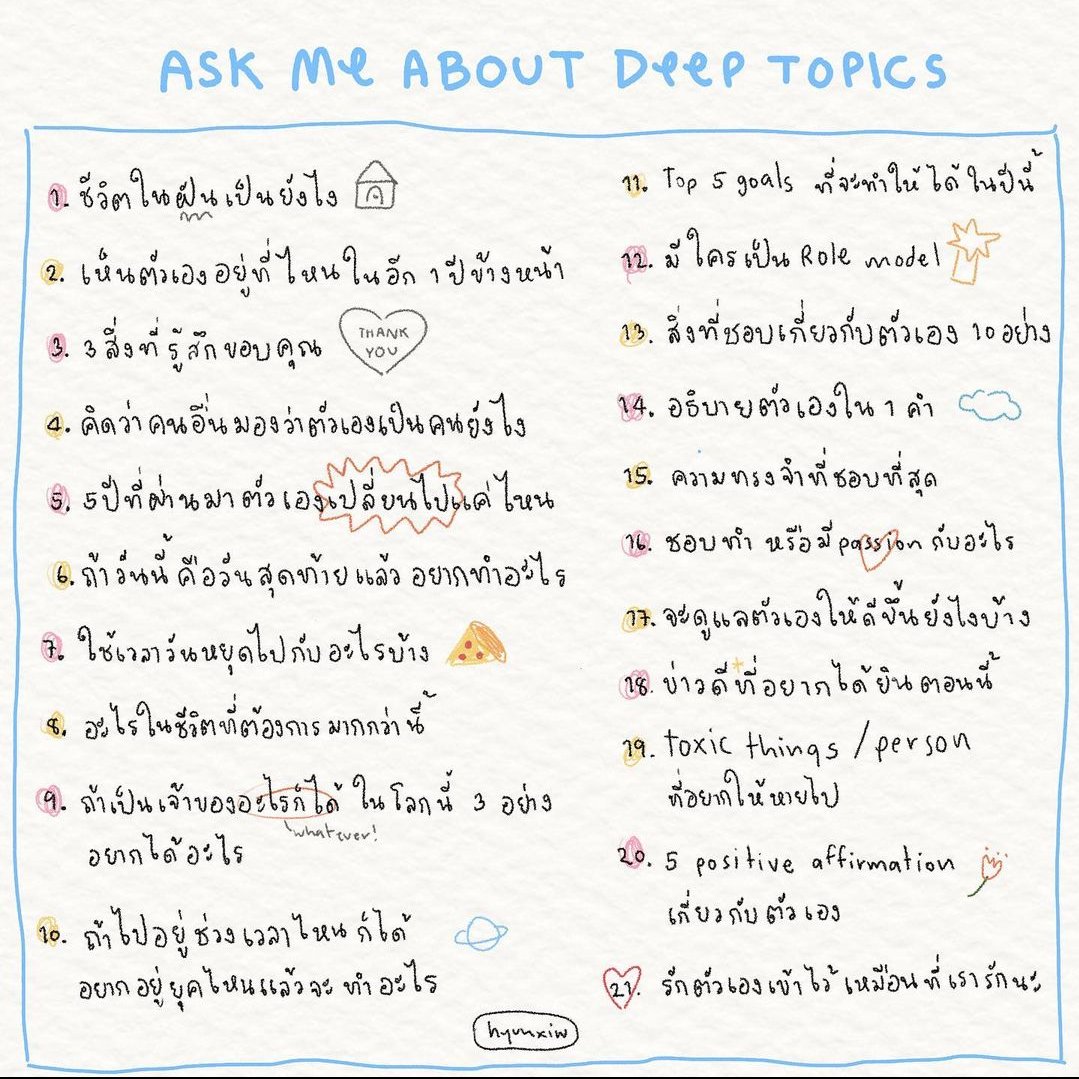 ASK Me ABOUT DeeP TOPICS
1. ชีวิตในฝันเป็นยังไง
2. เห็นตัวเองอยู่ที่ไหนในอีก 1 ปีข้างหน้า
3. 3 สิ่งที่รู้สึกขอบคุณ
THANK
YOU
4. คิดว่าคนอื่นมองว่าตัวเองเป็นคนยังไง
5. 5 ปีที่ผ่านมาตัวเองเปลี่ยนไปแค่ไหน
6. ถ้าวันนี้คือวันสุดท้ายแล้วอยากทำอะไร
7. ใช้เวลาวันหยุดไปกับอะไรบ้าง
8. อะไรในชีวิตที่ต้องการมากกว่านี้
9. ถ้าเป็นเจ้าของอะไรก็ได้ ในโลกนี้ 3 อย่าง
whatever!
อยากได้อะไร
10. ถ้าไปอยู่ช่วงเวลาไหนก็ได้
อยากอยู่ยุคไหนแล้วจะทำอะไร
11. Top 5 goals ที่จะทำให้ได้ในปีนี้
12. มีใครเป็น Role model
13. สิ่งที่ชอบเกี่ยวกับตัวเอง 10 อย่าง
14. อธิบายตัวเองใน 1 คำ
15. ความทรงจำที่ชอบที่สุด
16. ชอบทำ หรือมี passion กับอะไร
17. จะดูแลตัวเองให้ดีขึ้นยังไงบ้าง
18. ข่าวดีที่อยากได้ยินตอนนี้
19. toxic things / person
ที่อยากให้หายไป
20. 5 positive affirmation
เกี่ยวกับตัวเอง
21. รักตัวเองเข้าไว้ เหมือนที่เรารักนะ
hyunxiw